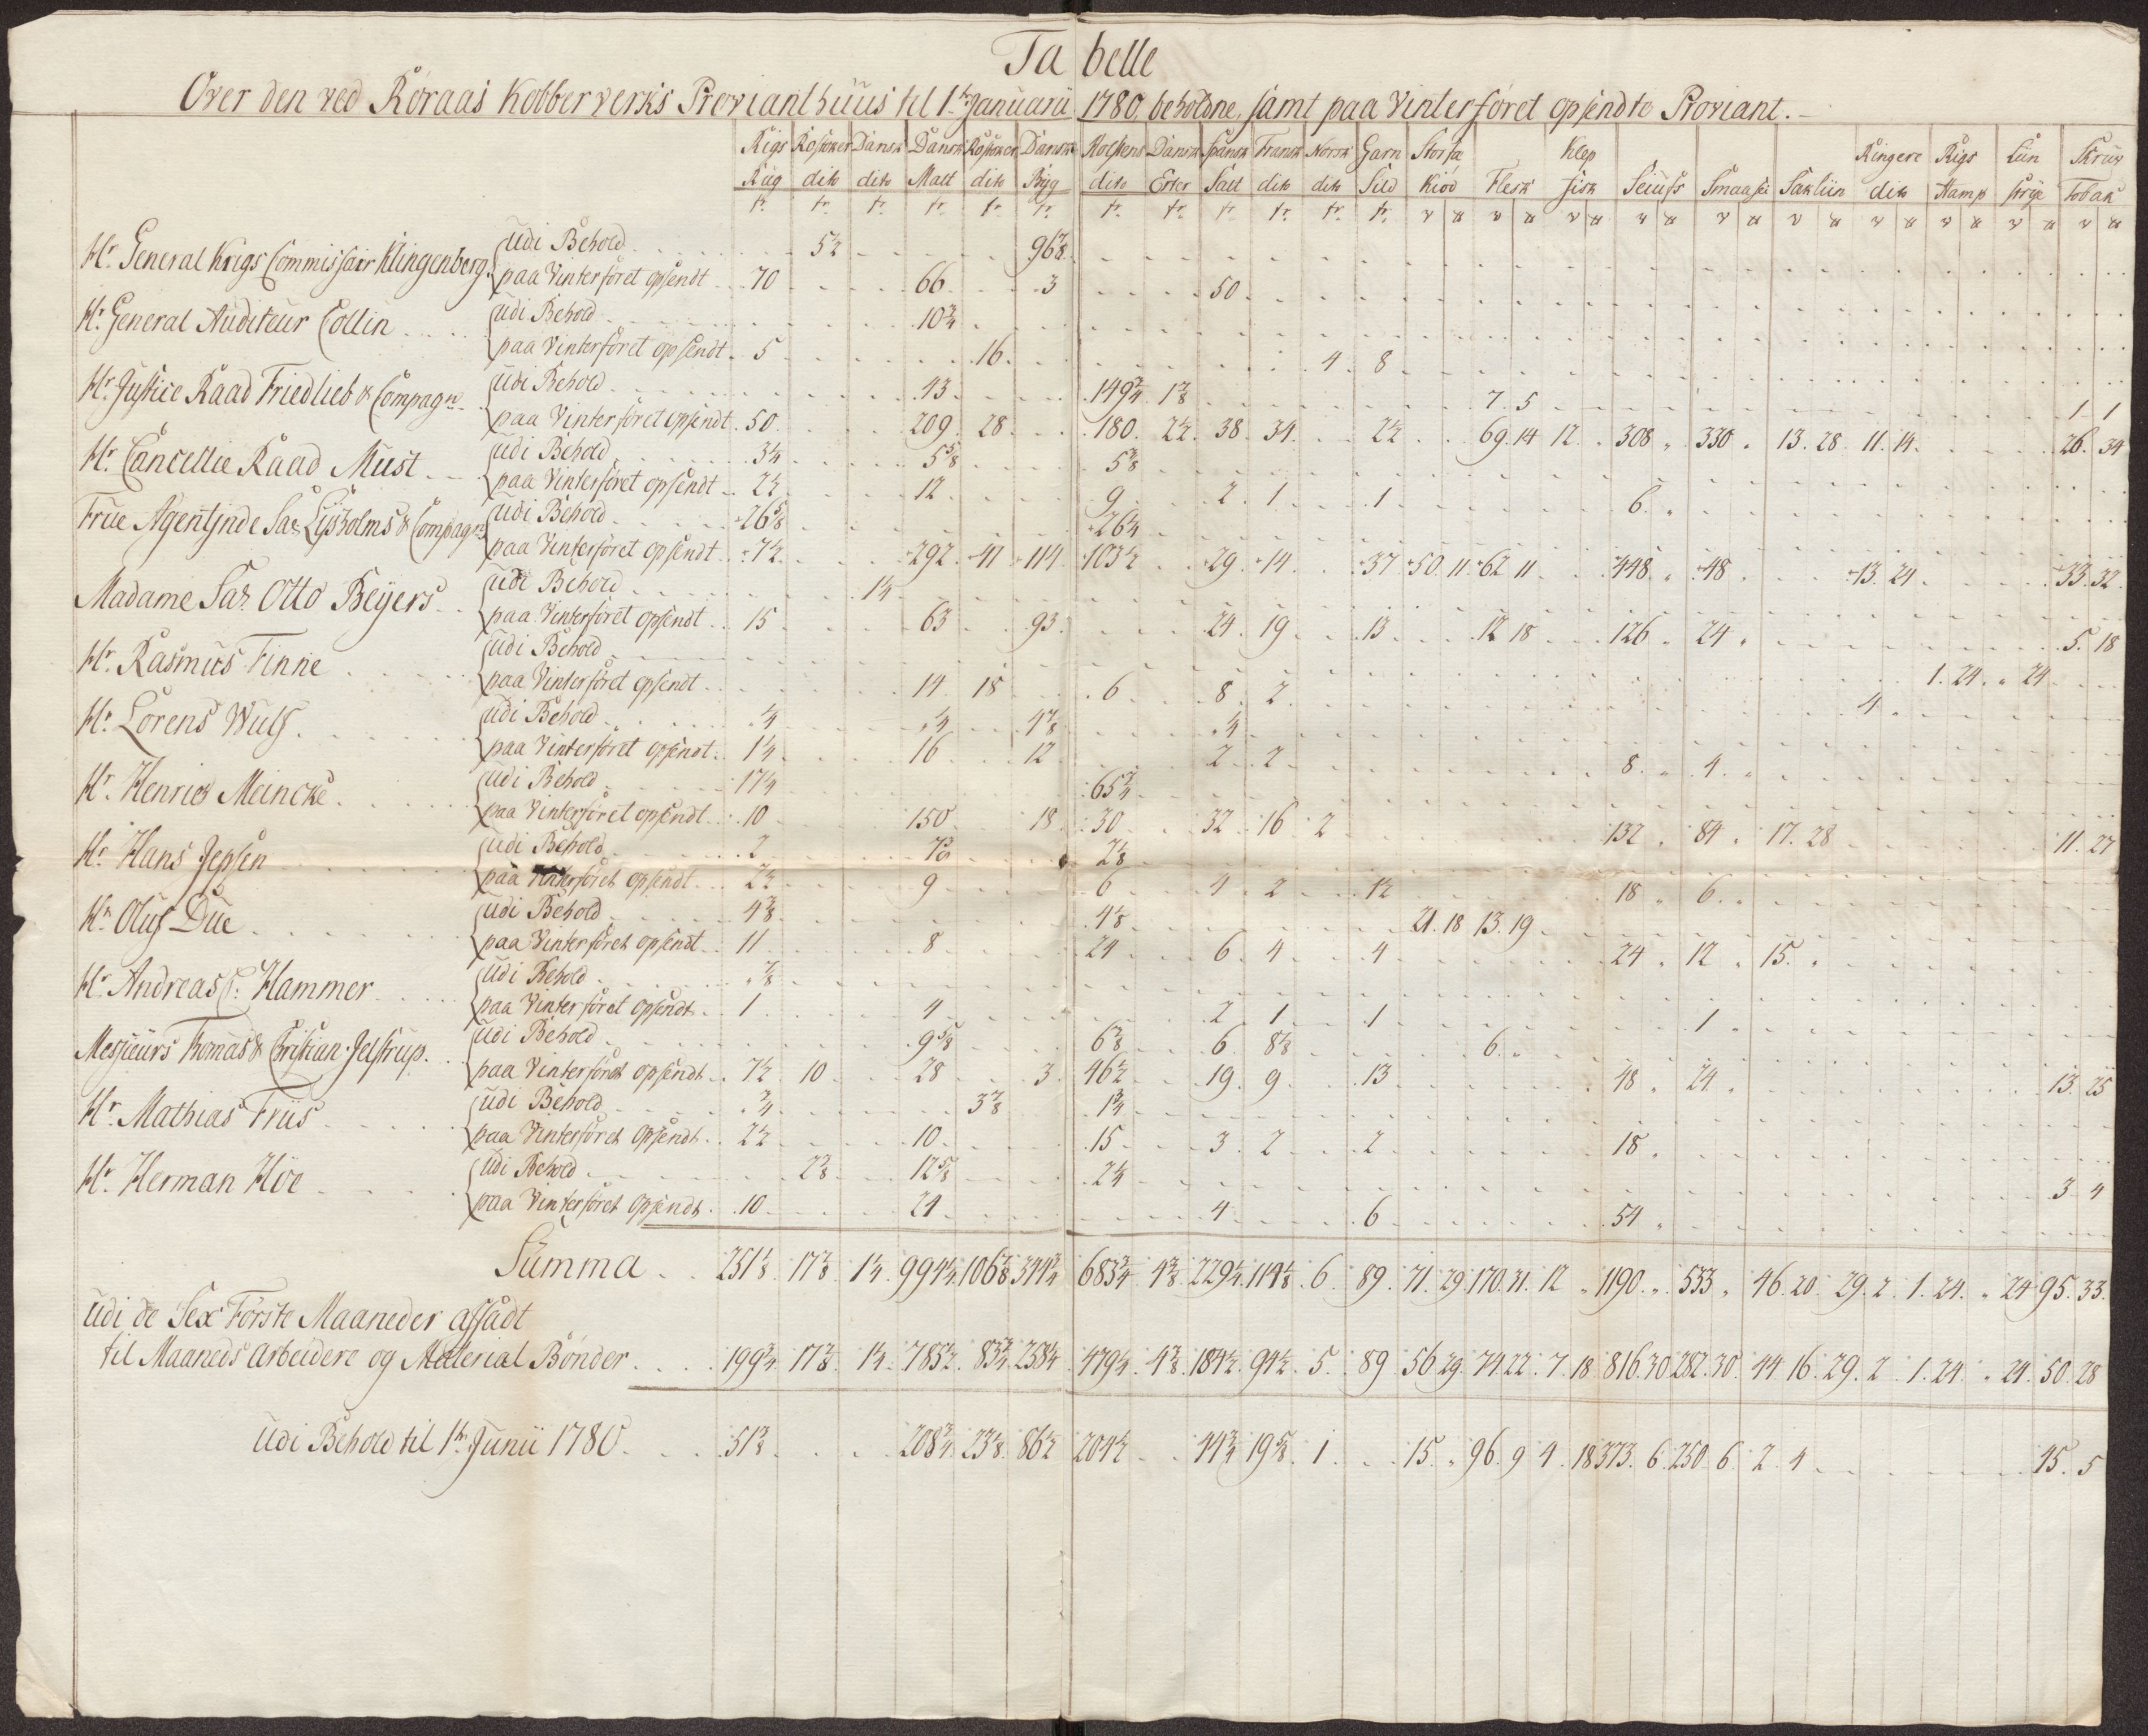 Tabelle
Over den ved Røraas Kobberverks Provianthuus til 1ste Januarii 1780, beholdne, samt paa Vinterføret opsendte Proviant.
Rigs Rosioker Dansk Dansk Rosioker Dansk Holstens Dansk Spansk Fransk Norsk Garn Storfæ Klep Ringere Rigs Liin Skruv
Rug dito dito Malt dito Byg dito Erter Salt dito dito Sild Kiød Flesk fisk Seiufs Smaasei Saxliin dito Hamp strye Tobak
Hr. General Krigs Commissair Klingenberg
Udi Behold 5½ 96⅞
paa Vinterføret opsendt 70 66 3 50
Hr. General Auditeur Collin
Udi Behold 10¾
paa Vinterføret opsendt 5 16 4 8
Hr. Justice Raad Friedlieb & Compagn.
Udi Behold 43 149¾ 1⅞ 7. 5 1 1
paa Vinterføret opsendt 50 209 28 180 2½ 38 34 2½ 69. 14 12 „ 308 „ 330 „ 13. 28 11. 14 26. 34
Hr. Cancellie Raad Must
Udi Behold 3¼ 5⅝ 5⅜
paa Vinterføret opsendt 2½ 12 9 2 1 1 6 „
Frue Agentinde Sal. Lysholms & Compagn.
Udi Behold 26⅝ 26¼
paa Vinterføret opsendt 7½ 292 41 114 103½ 29 14 37 50. 11 62 11 448 „ 48 13. 21 33. 32
Madame Sal. Otto Beyers
Udi Behold 1¼
paa Vinterføret opsendt 15 63 93 24 19 13 12 18 126 „ 24 „ 5. 18
Hr. Rasmus Finne
Udi Behold
paa Vinterføret opsendt 14 18 6 8 2 4 1. 24 „ 24
Hr. Lorens Wulf
Udi Behold ¼ ¼ 4⅞ ¼
paa Vinterføret opsendt 1¼ 16 12 2 2 8 „ 4 „
Hr. Henrich Meincke
Udi Behold 17¼ 65¾
paa Vinterføret opsendt 10 150 18 30 32 16 2 132 „ 84 „ 17. 28 11. 27
Hr. Hans Jepsen
Udi Behold 2 ⅞ 2⅛
paa Vinterføret opsendt 2½ 9 6 4 2 1½ 18 „ 6 „
Hr. Oluf Due
Udi Behold 4⅜ 4⅛ 21. 18 13. 19
paa Vinterføret opsendt 11 8 24 6 4 4 24 „ 12 „ 15 „
Hr. Andreas Hammer
Udi Behold ⅞
paa Vinterføret opsendt 1 4 2 1 1 1 „
Messieurs Thomas & Christian Jelstrup
Udi Behold 9⅝ 6⅜ 6 8⅛ 6 „
paa Vinterføret opsendt 7½ 10 28 3 46½ 19 9 13 48 „ 24 13. 25
Hr. Mathias Friis
Udi Behold ¾ 3⅞ 1¾
paa Vinterføret opsendt 2½ 10 15 3 2 2 18 „
Hr. Herman Høe
Udi Behold 2⅜ 12⅝ 2¼ 3 4
paa Vinterføret opsendt 10 24 4 6 54 „
Summa 251⅛ 17⅞ 1¼ 994¼ 106⅞ 344¾ 683¾ 4⅜ 229¼ 114⅛ 6 89 71. 29 170. 31 12 „ 1190 „ 533 „ 46. 20 29. 2 1. 24 „ 24 95. 33
Udi de Sex Første Maaneder afsadt
til Maaneds Arbeidere og Material Bønder 199¾ 17⅞ 1¼ 785½ 83¾ 258¼ 479¼ 4⅜ 184½ 94½ 5 89 56 29 74 22 7. 18 816. 30 282. 30 44 16 29. 2 1. 24 „ 24 50. 28
Udi Behold til 1ste Junii 1780 51⅜ 208¾ 23⅛ 86½ 204½ 44¾ 19⅝ 1 15 „ 96. 9 4. 18 373. 6 250 6 2 4 45. 5